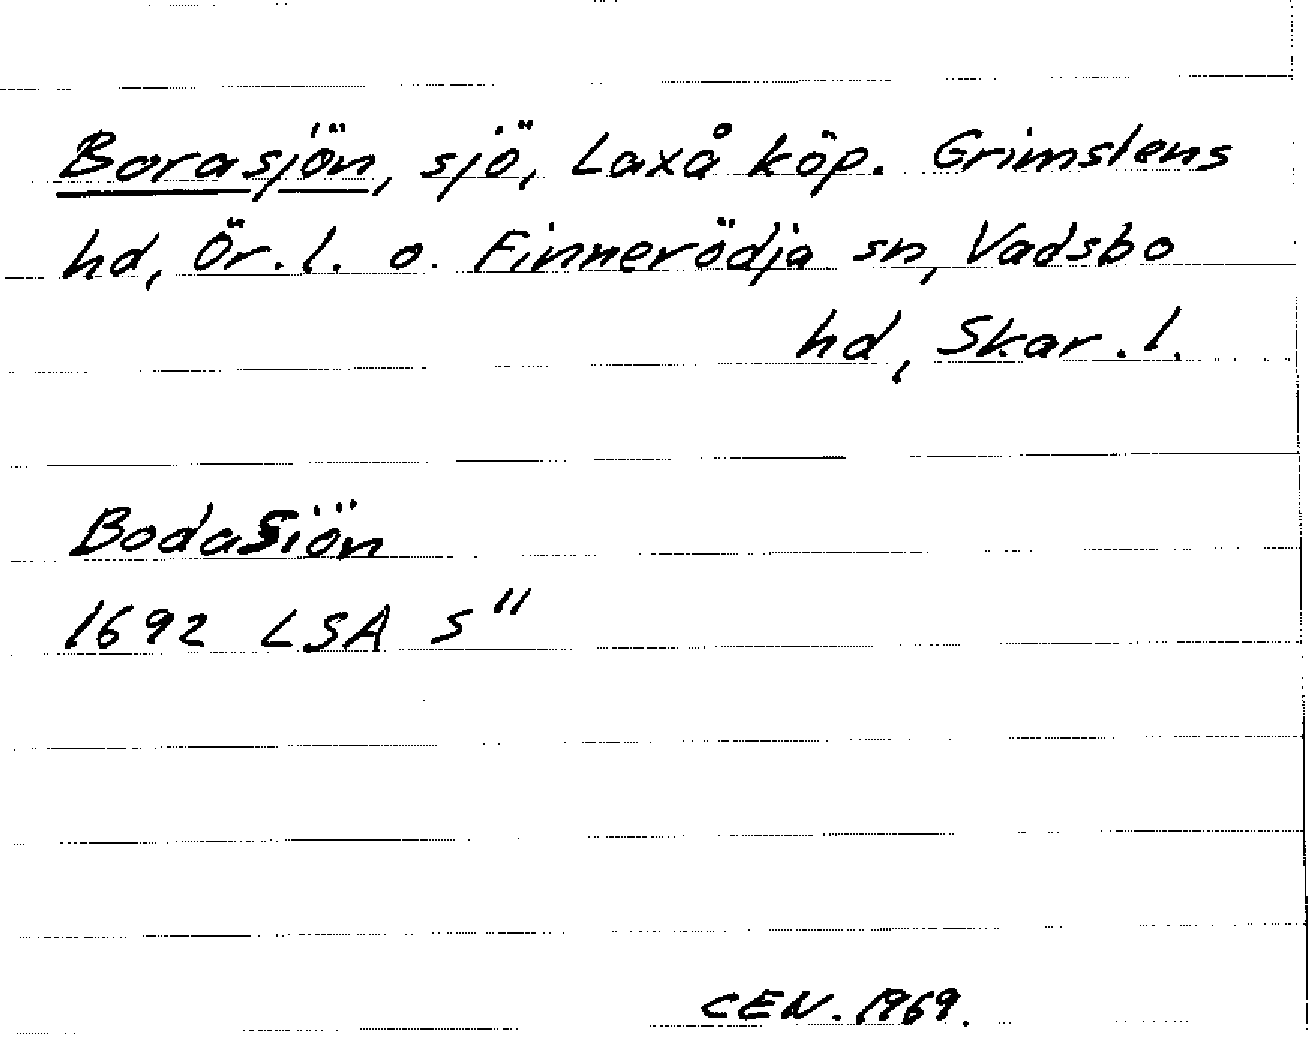 Borasjön, sjö, Laxå köp. Grimslens
hd, Ör. l. o. Finnerödja sn, Vadsbo
hd, Skar. l.
BodaSiön
1692 LSA S"
CEN. 1969.